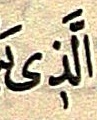 الَّذِى